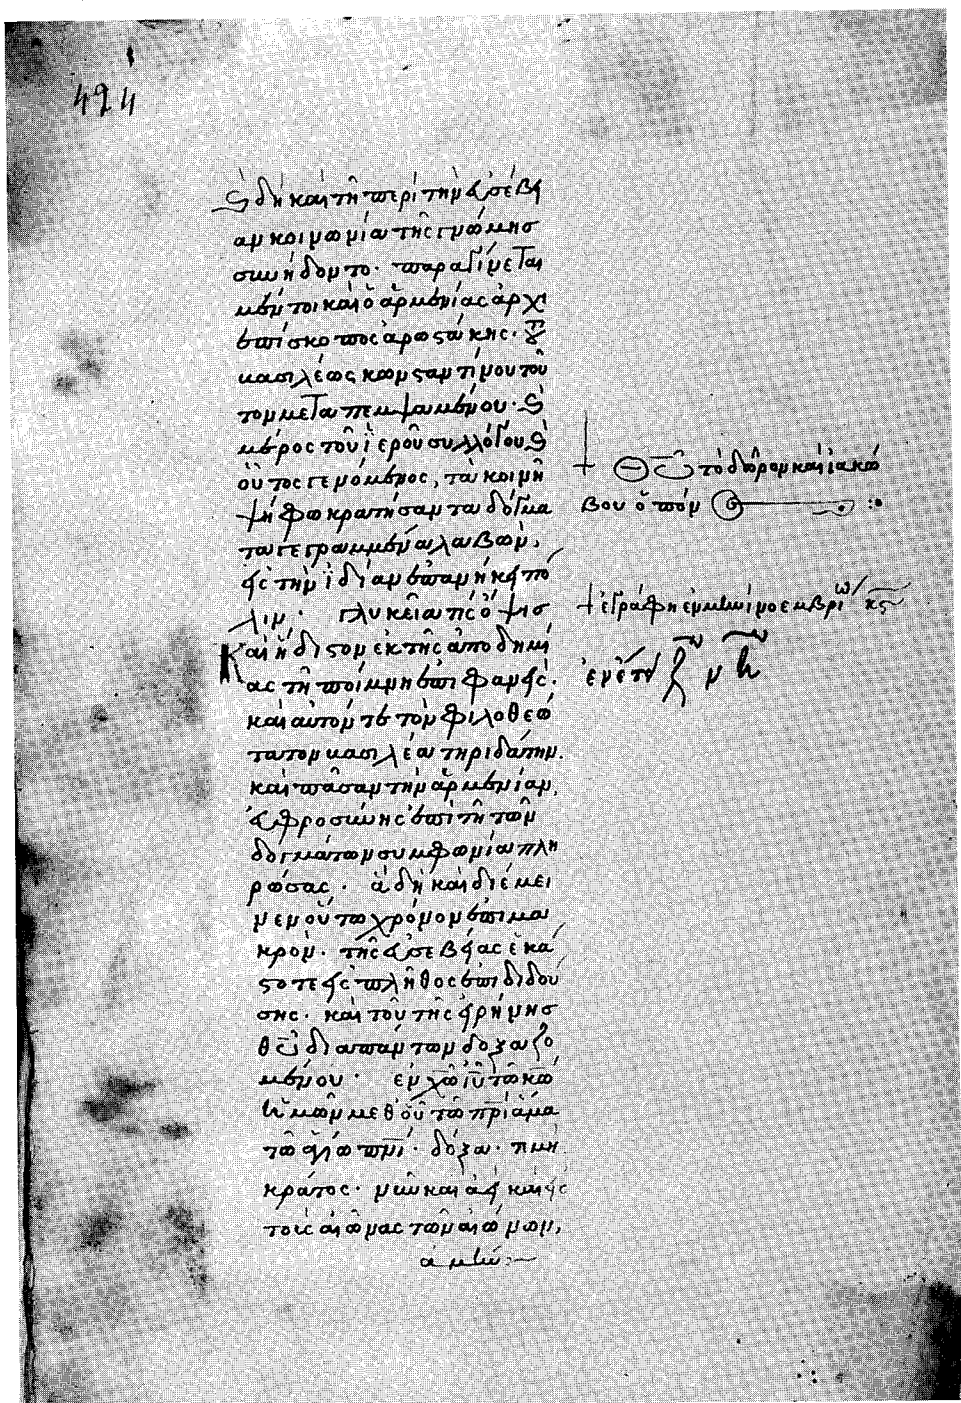 424
δὴ καὶ τῆ περὶ τὴν εὐσέβει
αν κοινωνία τῆς γνώμης
συνήδοντο. παραγίνεται
μέντοι καὶ ὁ ἀρμενίας ἀρχι
επίσκοπος ἀρωστώκης.
βασιλέως κωνσταντίνου τοῦ
τον μεταπεμψαμένου.
μέρος τοῦ ἱεροῦ συλλόγου
οὗτος γενόμενος, τὰ κοινῆ
ψήφω κρατήσαντα δόγμα
τα γεγραμμένα λαβών,
εἰς τὴν ἰδίαν ἐπανήκει πά
λιν. γλυκεῖα τις ὄψις
Καὶ ἥδιστον ἐκ τῆς ἀποδημί
ας τῆ ποίμνη ἐπιφανείς.
καὶ αὐτόν τε τὸν φιλοθεώ
τατον βασιλέα τηριδάτην.
καὶ πᾶσαν τὴν ἀρμενίαν,
εὐφροσύνης ἐπὶ τῆ τῶν
δογμάτων συμφωνία πλη
ρώσας. ἃ δὴ καὶ διέμει
νεν οὕτω χρόνον ἐπὶ μα
κρόν. τῆς εὐσεβείας ἑκά
στοτε εἰς πλῆθος ἐπιδιδού
σης. καὶ τοῦ τῆς εἰρήνης
θυ διαπάντων δοξαζο
μένου. ἐν χω ιυ τῶ κω
ἡμῶν μεθ οὗ τῶ πρι ἅμα
τῶ ἁγίω πνι. δόξα. τιμὴ
κράτος. νῦν καὶ ἀεὶ καὶ εἰς
τοὺς αἰῶνας τῶν αἰώνων,
ἀμήν:
+ Θυ τὸ δῶρον καὶ ἰακώ
βου ὁ πόν :
+ ἐγράφη ἐν μηνὶ νοεμβρίω κς
ἐν ἔτει